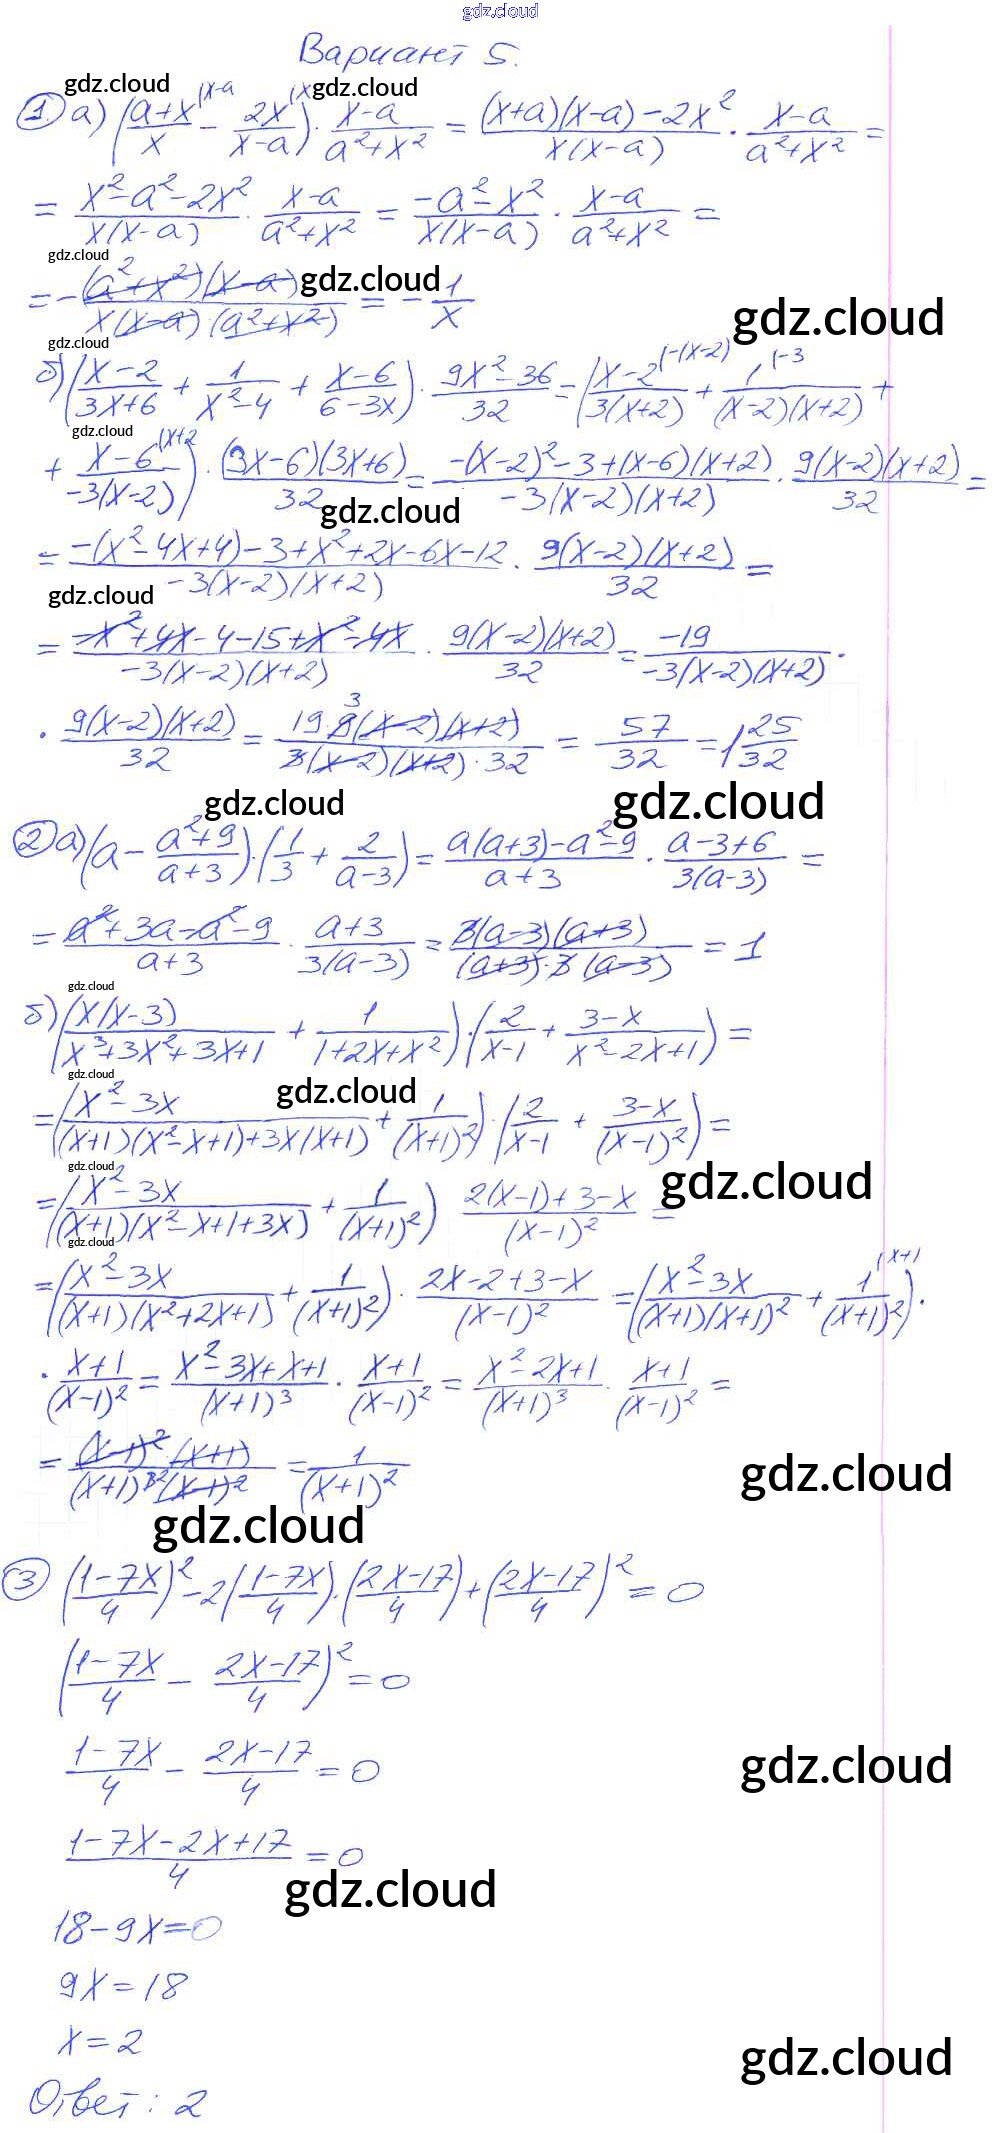 gdz.cloud
Вариант 5.
gdz.cloud gdz.cloud
1 а) ((a+x)/x (x-a - 2x/(x-a) (x) · (x-a)/(a²+x²) = ((x+a)(x-a)-2x²)/(x(x-a)) · (x-a)/(a²+x²) =
= (x²-a²-2x²)/(x(x-a)) · (x-a)/(a²+x²) = (-a²-x²)/(x(x-a)) · (x-a)/(a²+x²) =
gdz.cloud gdz.cloud
= - ((a²+x²)(x-a))/(x(x-a)·(a²+x²)) = - 1/x
gdz.cloud
gdz.cloud
б) ((x-2)/(3x+6) + 1/(x²-4) + (x-6)/(6-3x)) · (9x²-36)/32 = ((x-2)/(3(x+2)) (-(x-2) + 1/((x-2)(x+2)) (-3 +
gdz.cloud
+ (x-6)/(-3(x-2)) (x+2) · ((3x-6)(3x+6))/32 = (-(x-2)²-3+(x-6)(x+2))/(-3(x-2)(x+2)) · (9(x-2)(x+2))/32 =
gdz.cloud
= (-(x²-4x+4)-3+x²+2x-6x-12)/(-3(x-2)(x+2)) · (9(x-2)(x+2))/32 =
gdz.cloud
= (-x²+4x-4-15+x²-4x)/(-3(x-2)(x+2)) · (9(x-2)(x+2))/32 = -19/(-3(x-2)(x+2)) ·
· (9(x-2)(x+2))/32 = (19·9 3 (x-2)(x+2))/(3(x-2)(x+2)·32) = 57/32 = 1 25/32
gdz.cloud gdz.cloud
2 а) (a - (a²+9)/(a+3)) · (1/3 + 2/(a-3)) = (a(a+3)-a²-9)/(a+3) · (a-3+6)/(3(a-3)) =
= (a²+3a-a²-9)/(a+3) · (a+3)/(3(a-3)) = (3(a-3)(a+3))/((a+3)·3(a-3)) = 1
gdz.cloud
б) ((x(x-3))/(x³+3x²+3x+1) + 1/(1+2x+x²)) · (2/(x-1) + (3-x)/(x²-2x+1)) =
gdz.cloud gdz.cloud
= ((x²-3x)/((x+1)(x²-x+1)+3x(x+1)) + 1/(x+1)²) · (2/(x-1) + (3-x)/(x-1)²) =
gdz.cloud gdz.cloud
= ((x²-3x)/((x+1)(x²-x+1+3x)) + 1/(x+1)²) (2(x-1)+3-x)/(x-1)² =
gdz.cloud
= ((x²-3x)/((x+1)(x²+2x+1)) + 1/(x+1)²) · (2x-2+3-x)/(x-1)² = ((x²-3x)/((x+1)(x+1)²) + 1/(x+1)² (x+1) ·
· (x+1)/(x-1)² = (x²-3x+x+1)/(x+1)³ · (x+1)/(x-1)² = (x²-2x+1)/(x+1)³ · (x+1)/(x-1)² =
= ((x-1)²·(x+1))/((x+1)³ ² (x-1)²) = 1/(x+1)²
gdz.cloud
gdz.cloud
3 ((1-7x)/4)² - 2((1-7x)/4)·((2x-17)/4) + ((2x-17)/4)² = 0
((1-7x)/4 - (2x-17)/4)² = 0
(1-7x)/4 - (2x-17)/4 = 0
gdz.cloud
(1-7x-2x+17)/4 = 0
gdz.cloud
18-9x=0
9x=18
x=2
gdz.cloud
Ответ: 2